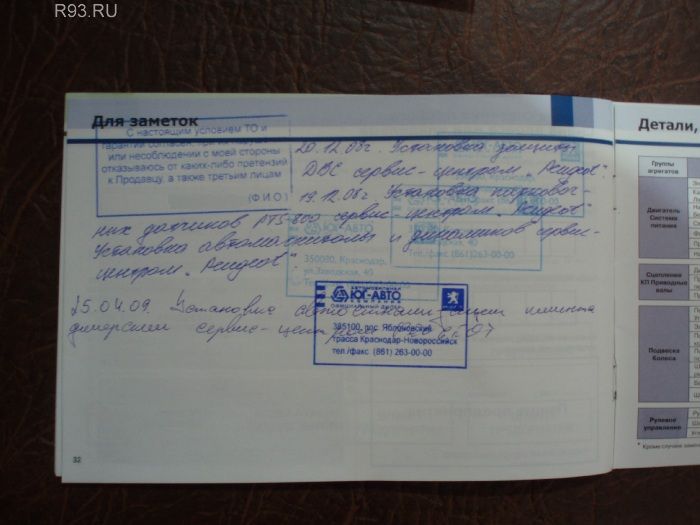 R93.RU
Для заметок
С настоящим условием ТО и
гарантии согласен. При
или несоблюдении с моей стороны
отказываюсь от каких-либо претензий
к Продавцу, а также третьим лицам
(Ф И О)
20.12.08г. Установка защиты
ДВС сервис-центром „Peugeot"
19.12.08г. Установка парковоч-
ных датчиков PTS-800 сервис-центром „Peugeot"
Установка автомагнитолы и динамиков сервис-
центром „Peugeot"
ЮГ-АВТО
350030, Краснодар,
ул.Заводская, 40
Тел./факс (861)263-00-00
25.04.09. Установка
сервис-центром
ЮГ-АВТО
КОМПАНИЯ
ОФИЦИАЛЬНЫЙ ДИЛЕР
385100, пос. Яблоновский,
трасса Краснодар-Новороссийск
тел./факс (861) 263-00-00
32
Детали,
Группы
агрегатов
Двигатель
Системы
питания
Сцепление
КП Приводные
валы
Подвеска
Колеса
Рулевое
управление
* Кроме случаев